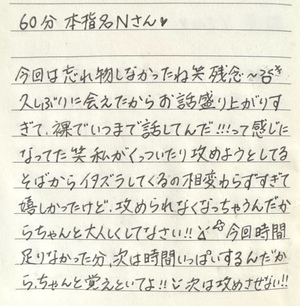 60分 本指名Nさん♥
今回は忘れ物しなかったね笑 残念〜
久しぶりに会えたからお話盛り上がりす
ぎて、裸でいつまで話してんだ!!!って感じに
なってた笑 私がくっついたり攻めようとしてる
そばからイタズラしてくるの相変わらずすぎて
嬉しかったけど、攻められなくなっちゃうんだか
らちゃんと大人しくしてなさい!! 今回時間
足りなかった分、次は時間いっぱいするんだか
ら、ちゃんと覚えといてよ!! 次は攻めさせない!!